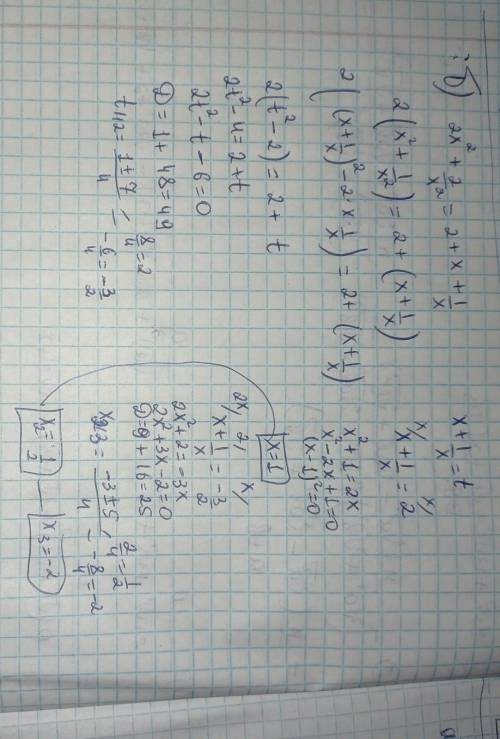 б) 2x² + 2/x² = 2 + x + 1/x
2(x² + 1/x²) = 2 + (x + 1/x)
2((x + 1/x)² - 2·x·1/x) = 2 + (x + 1/x)
2(t² - 2) = 2 + t
2t² - 4 = 2 + t
2t² - t - 6 = 0
D = 1 + 48 = 49
t₁,₂ = (1 ± 7)/4
8/4 = 2
-6/4 = -3/2
x + 1/x = t
x/ x/
x + 1/x = 2
x² + 1 = 2x
x² - 2x + 1 = 0
(x - 1)² = 0
x = 1
2x/ 2/ x/
x + 1/x = -3/2
2x² + 2 = -3x
2x² + 3x - 2 = 0
D = 9 + 16 = 25
x₂,₃ = (-3 ± 5)/4
2/4 = 1/2
-8/4 = -2
x₂ = 1/2
x₃ = -2